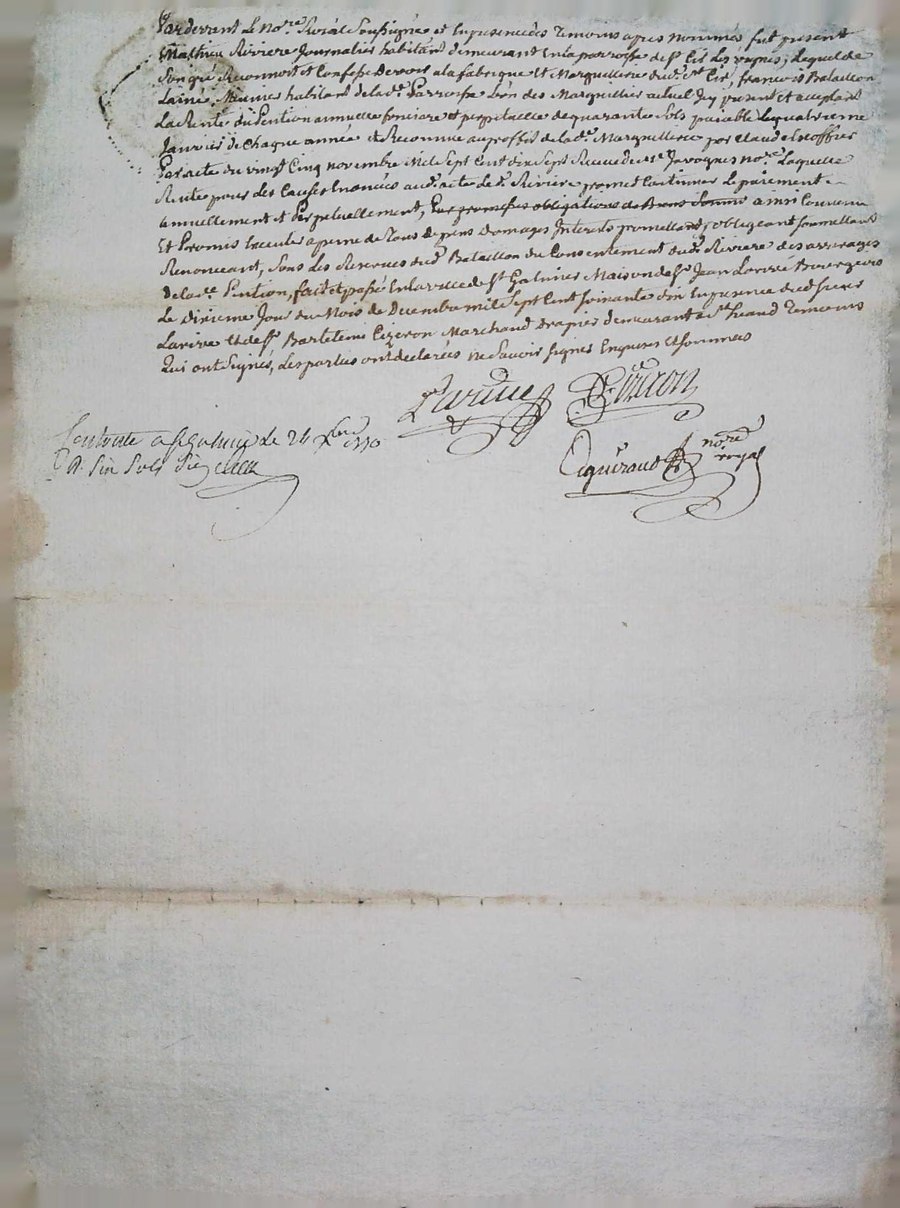 Pardevant Le No.re Royal Soussigné et En presence des Temoins apres Nommés fut present
Mathieu Riviere Journalier habitant demeurant En la parroisse de S.t Cir Les vignes, Lequel de
Son gré Reconnoit et Confesse Devoir a la fabrique Et Marguillerie dud. S.t Cir, francois Bataillon
Lainé, habitant de lad.e Parroisse L'un des Marguilliers actuel Icy present et acceptant
La Rente ou Pention annuelle fonciere et perpetuelle de quarante Sols paiable Le quatrieme
Janvier de Chaque année et Reconnue au proffit de lad.e Marguillerie par Claude Escoffier
Par acte du vingt Cinq novembre Mil Sept Cent dix Sept Recu de M.e Javogues No.re Laquelle
Rente pour des Causes Enoncées aud. acte Le d. Riviere promet Continuer Le paiement
annuellement et Perpetuellement, Par promesses obligations de Biens Soumis ainsi Convenu
Et Promis Executer a peine de Tous depens Domages Interets promettant, obligeant Soumettant
Renonceant, Sous Les Reserves dud. Bataillon du Consentement dud. Riviere des arrerages
de lad.e Pention, fait et passé En la ville de S.t Galmier Maison de S.r Jean Bourgeois
Le dixieme Jour du Mois de Decembre mil Sept Cent Soixante dix En presence dud Sieur
et de S.r Bartelemi Cizeron Marchand drapier demeurant a S.t heand Temoins
Qui ont Signés, Les parties ont declarées ne Savoir Signer Enquis Et Sommés
Cizeron
no.re
royal
Controlé a S.t Galmier Le 24 Xbre 1770
R. Six Sols Six